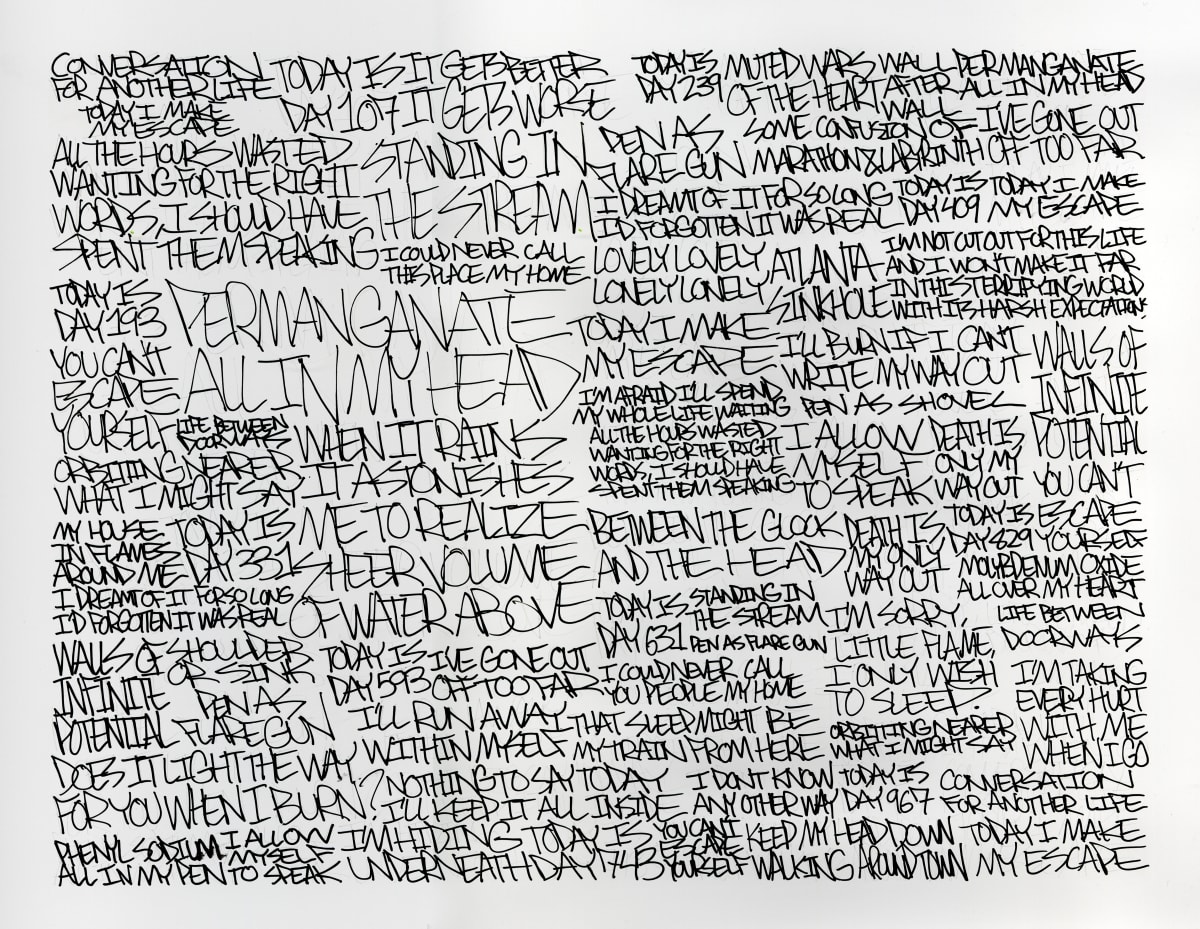 CONVERSATION
FOR ANOTHER LIFE
TODAY I MAKE
MY ESCAPE
TODAY IS IT GETS BETTER
DAY 107 IT GETS WORSE
TODAY IS
DAY 239
MUTED WARS
OF THE HEART
WALL PERMANGANATE
AFTER ALL IN MY HEAD
WALL
ALL THE HOURS WASTED
WANTING FOR THE RIGHT
WORDS, I SHOULD HAVE
SPENT THEM SPEAKING
STANDING IN
THE STREAM
I COULD NEVER CALL
THIS PLACE MY HOME
PEN AS
FLARE GUN
SOME CONFUSION OF
MARATHON & LABYRINTH
I'VE GONE OUT
OFF TOO FAR
I DREAMT OF IT FOR SO LONG
I'D FORGOTTEN IT WAS REAL
TODAY IS
DAY 409
TODAY I MAKE
MY ESCAPE
LOVELY LOVELY
LONELY LONELY
ATLANTA
SINKHOLE
I'M NOT CUT OUT FOR THIS LIFE
AND I WON'T MAKE IT FAR
IN THIS TERRIFYING WORLD
WITH ITS HARSH EXPECTATIONS
TODAY IS
DAY 193
PERMANGANATE
ALL IN MY HEAD
YOU CAN'T
ESCAPE
YOURSELF
LIFE BETWEEN
DOORWAYS
TODAY I MAKE
MY ESCAPE
I'LL BURN IF I CAN'T
WRITE MY WAY OUT
PEN AS SHOVEL
WALLS OF
INFINITE
POTENTIAL
I'M AFRAID I'LL SPEND
MY WHOLE LIFE WAITING
ALL THE HOURS WASTED
WANTING FOR THE RIGHT
WORDS, I SHOULD HAVE
SPENT THEM SPEAKING
I ALLOW
MYSELF
TO SPEAK
DEATH IS
ONLY MY
WAY OUT
YOU CAN'T
ESCAPE
YOURSELF
ORBITING NEARER
WHAT I MIGHT SAY
WHEN IT RAINS
IT ASTONISHES
ME TO REALIZE
SHEER VOLUME
OF WATER ABOVE
MY HOUSE
IN FLAMES
AROUND ME
TODAY IS
DAY 331
BETWEEN THE GLOCK
AND THE HEAD
DEATH IS
MY ONLY
WAY OUT
TODAY IS
DAY 829
MOLYBDENUM OXIDE
ALL OVER MY HEART
I DREAMT OF IT FOR SO LONG
I'D FORGOTTEN IT WAS REAL
TODAY IS
DAY 631
STANDING IN
THE STREAM
PEN AS FLARE GUN
I'M SORRY,
LITTLE FLAME,
I ONLY WISH
TO SLEEP.
LIFE BETWEEN
DOORWAYS
WALLS OF
INFINITE
POTENTIAL
SHOULDER
OR SINK
PEN AS
FLARE GUN
TODAY IS
DAY 593
I'VE GONE OUT
OFF TOO FAR
I COULD NEVER CALL
YOU PEOPLE MY HOME
I'M TAKING
EVERY HURT
WITH ME
WHEN I GO
I'LL RUN AWAY
WITHIN MYSELF
THAT SLEEP MIGHT BE
MY TRAIN FROM HERE
ORBITING NEARER
WHAT I MIGHT SAY
DOES IT LIGHT THE WAY
FOR YOU WHEN I BURN?
NOTHING TO SAY TODAY
I'LL KEEP IT ALL INSIDE
I DON'T KNOW
ANY OTHER WAY
TODAY IS
DAY 967
CONVERSATION
FOR ANOTHER LIFE
PHENYL SODIUM
ALL IN MY PEN
I ALLOW
MYSELF
TO SPEAK
I'M HIDING
UNDERNEATH
TODAY IS
DAY 743
YOU CAN'T
ESCAPE
YOURSELF
KEEP MY HEAD DOWN
WALKING AROUND TOWN
TODAY I MAKE
MY ESCAPE